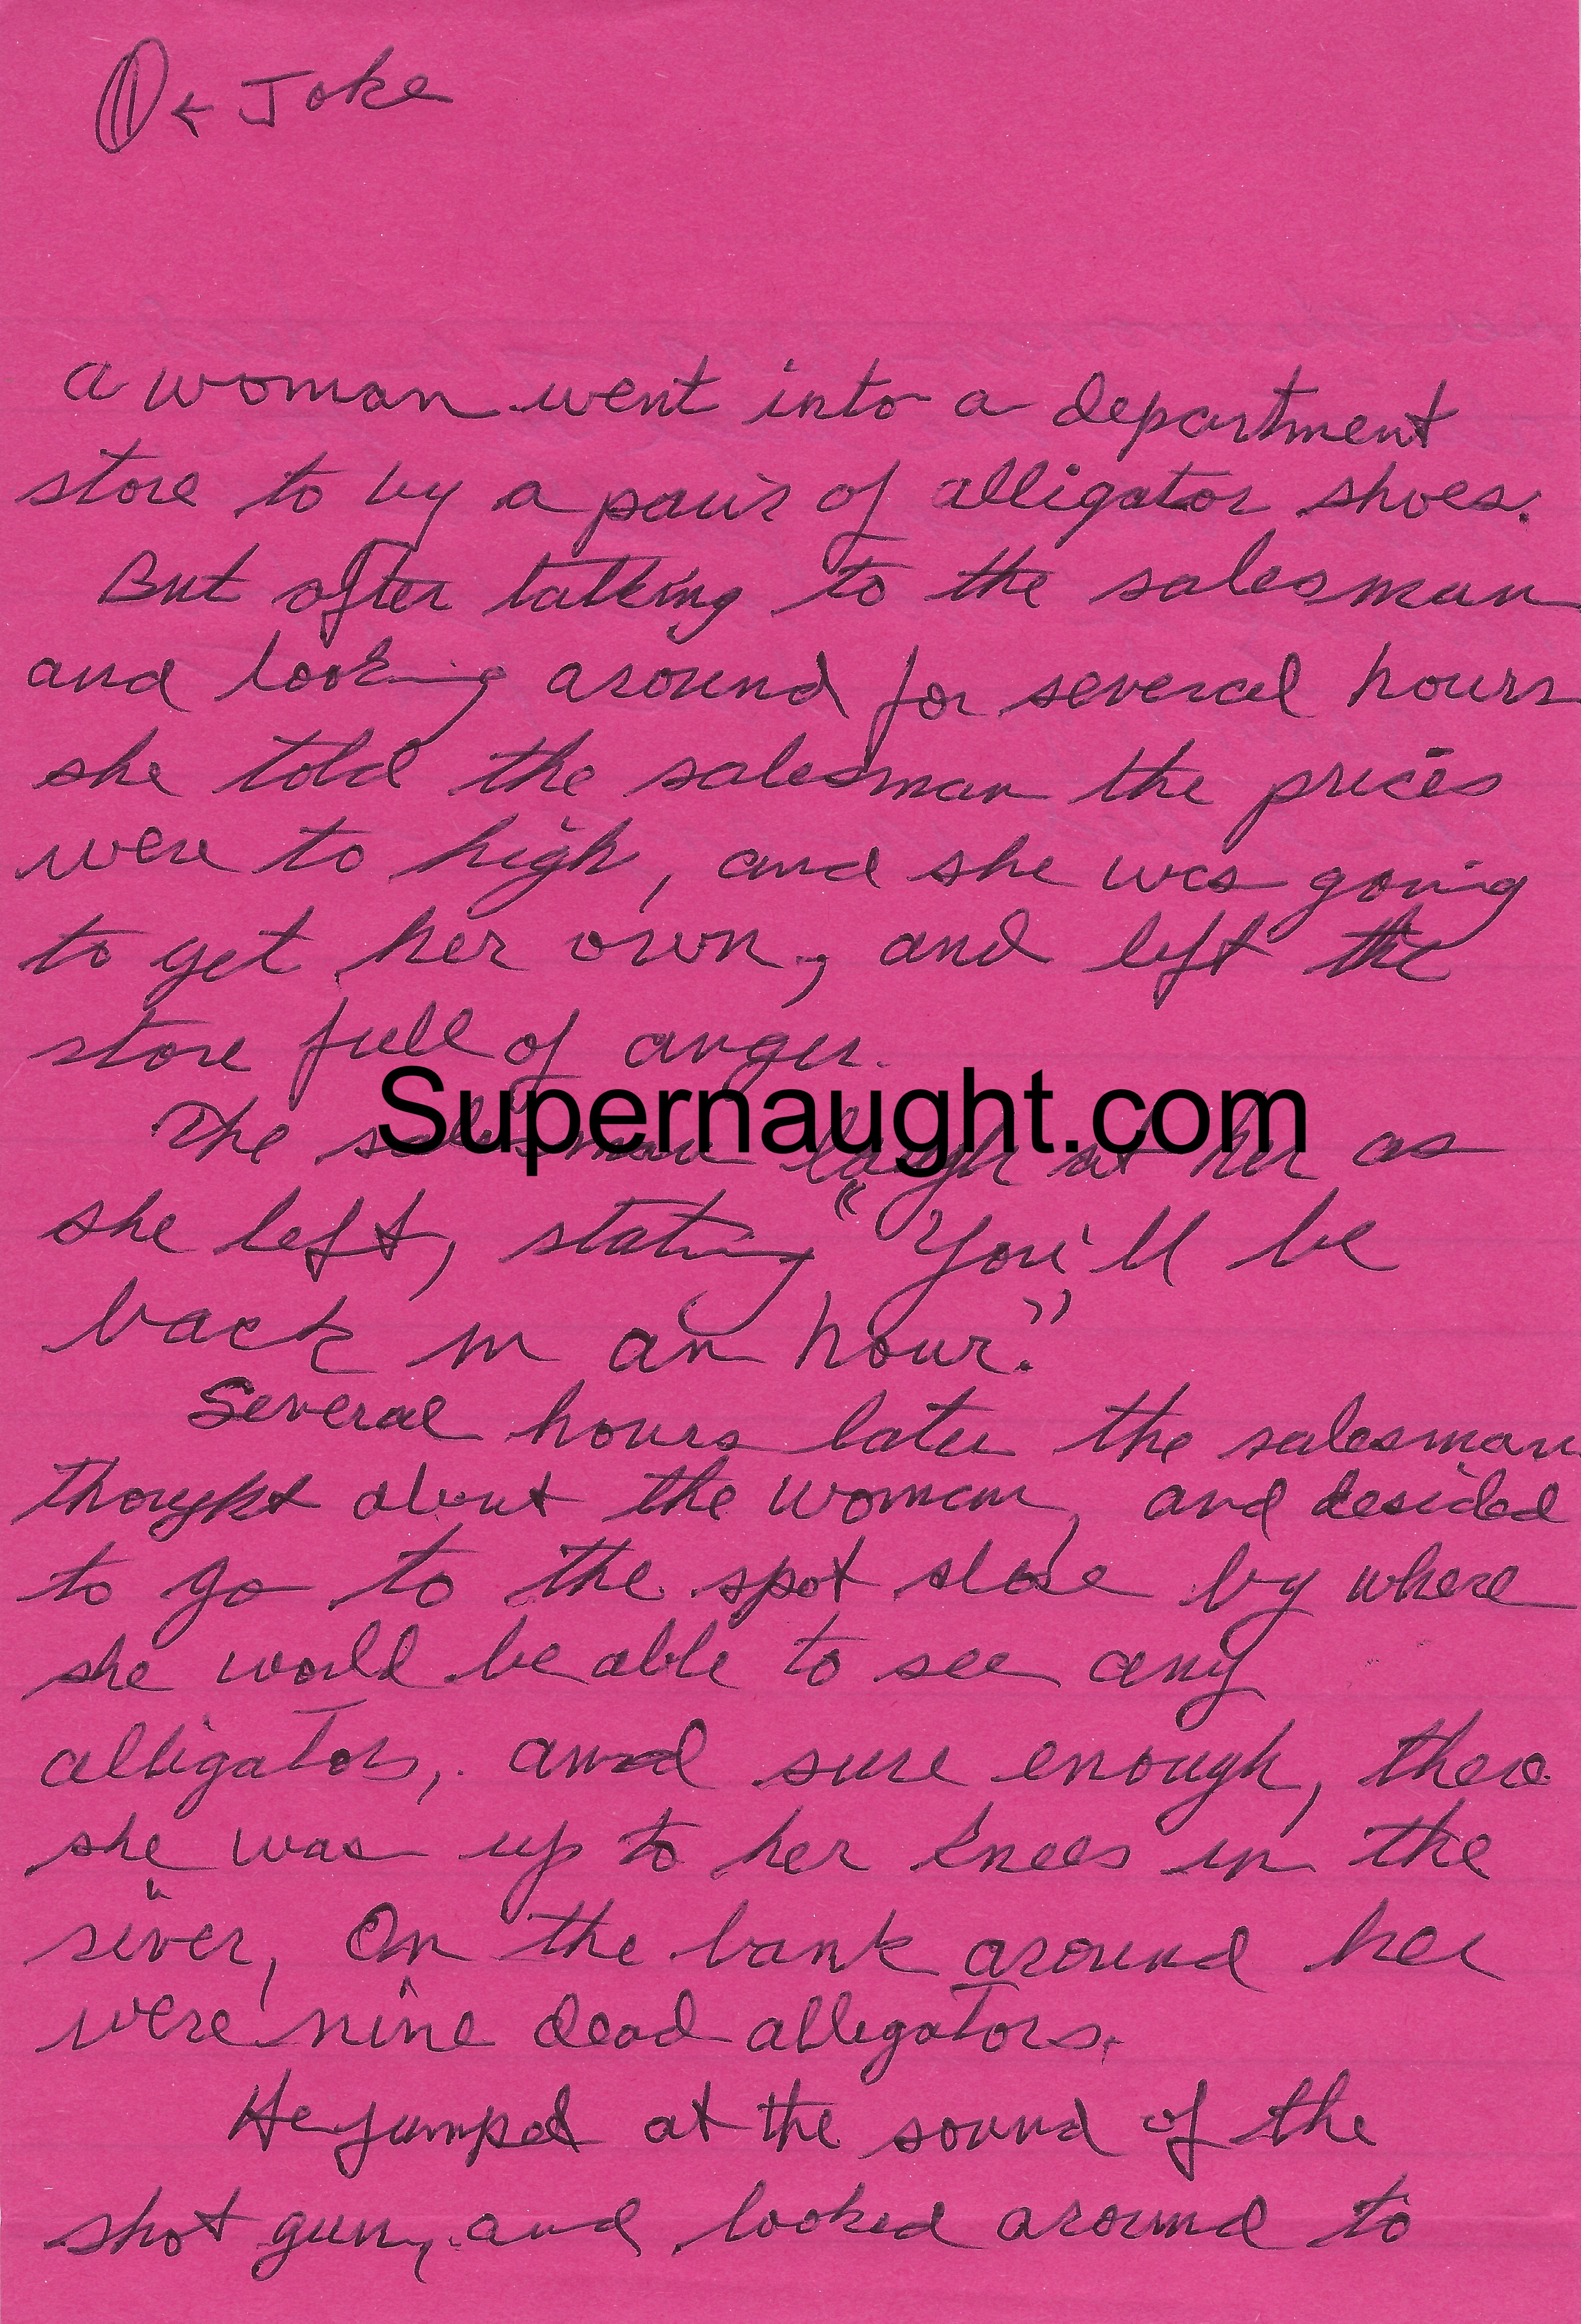 ① ← Joke
a woman went into a department
store to by a pair of alligator shoes.
But after talking to the salesman
and looking around for several hours
she told the salesman the prices
were to high, and she was going
to get her own, and left the
store full of anger.
Supernaught.com
The salesman laugh at her as
she left, stating "You'll be
back in an hour."
Several hours later the salesman
thought about the woman, and desided
to go to the spot close by where
she would be able to see any
alligators, and sure enough, there
she was up to her knees in the
river, On the bank around her
were nine dead alligators.
He jumped at the sound of the
shot gun, and looked around to